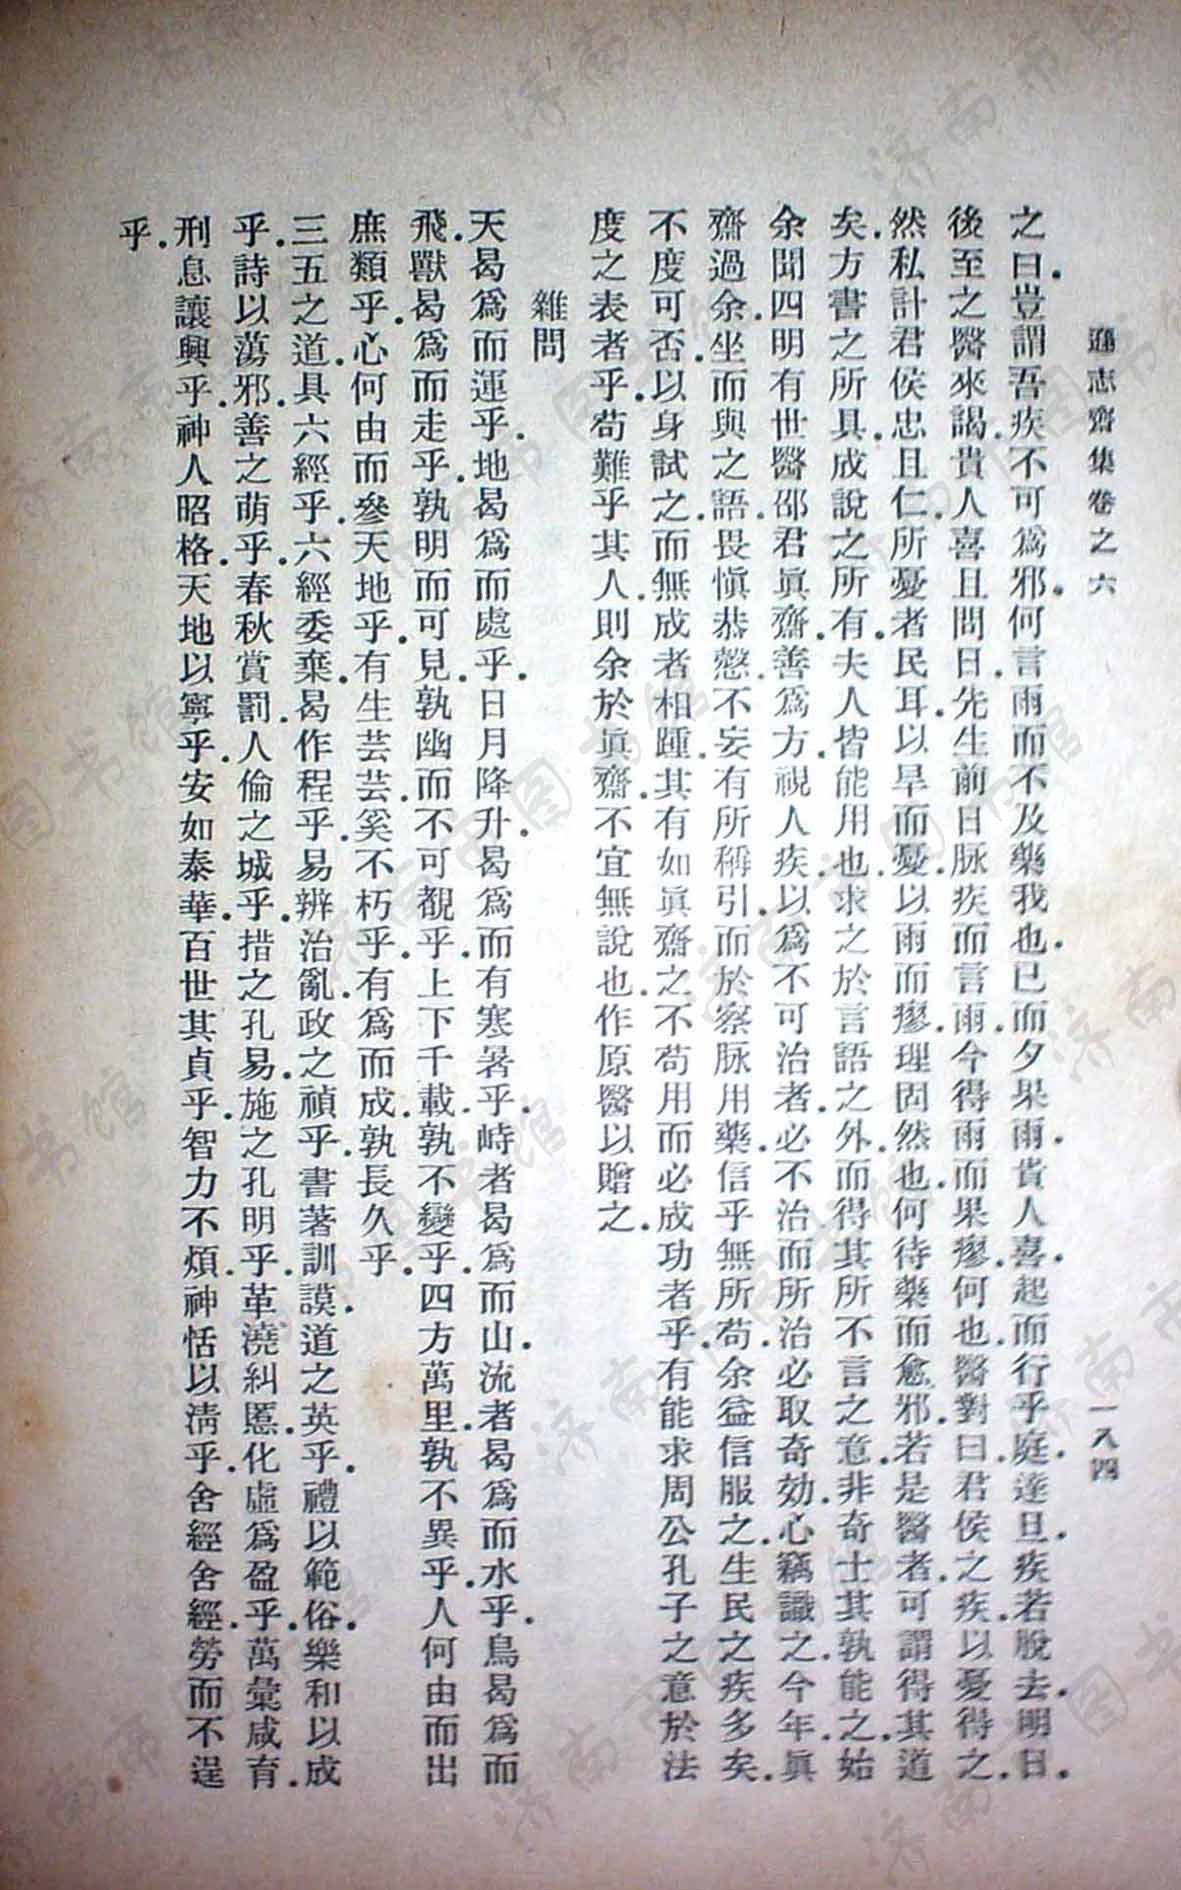 遜志齋集卷之六
一八四
之曰.豈謂吾疾不可爲邪.何言雨而不及藥我也.已而夕果雨.貴人喜.起而行乎庭.達旦.疾若脫去.明日.
後至之醫來謁.貴人喜且問曰.先生前日脉疾而言雨.今得雨而果瘳.何也.醫對曰.君侯之疾.以憂得之.
然私計君侯忠且仁.所憂者民耳.以旱而憂.以雨而瘳.理固然也.何待藥而愈邪.若是醫者.可謂得其道
矣.方書之所具.成說之所有.夫人皆能用也.求之於言語之外.而得其所不言之意.非奇士其孰能之.始
余聞四明有世醫邵君眞齋.善爲方.視人疾.以爲不可治者.必不治.而所治必取奇効.心竊識之.今年.眞
齋過余.坐而與之語.畏愼恭慤.不妄有所稱引.而於察脉用藥.信乎無所苟.余益信服之.生民之疾多矣.
不度可否.以身試之.而無成者相踵.其有如眞齋之不苟用而必成功者乎.有能求周公孔子之意於法
度之表者乎.苟難乎其人.則余於眞齋.不宜無說也.作原醫以贈之.
雜問
天曷爲而運乎.地曷爲而處乎.日月降升.曷爲而有寒暑乎.峙者曷爲而山.流者曷爲而水乎.鳥曷爲而
飛.獸曷爲而走乎.孰明而可見.孰幽而不可覩乎.上下千載.孰不變乎.四方萬里.孰不異乎.人何由而出
庶類乎.心何由而參天地乎.有生芸芸.奚不朽乎.有爲而成.孰長久乎.
三五之道.具六經乎.六經委棄.曷作程乎.易辨治亂.政之禎乎.書著訓謨.道之英乎.禮以範俗.樂和以成
乎.詩以蕩邪.善之萌乎.春秋賞罰.人倫之城乎.措之孔易.施之孔明乎.革澆糾慝.化虛爲盈乎.萬彙咸育.
刑息讓興乎.神人昭格.天地以寧乎.安如泰華.百世其貞乎.智力不煩.神恬以淸乎.舍經舍經.勞而不逞
乎.